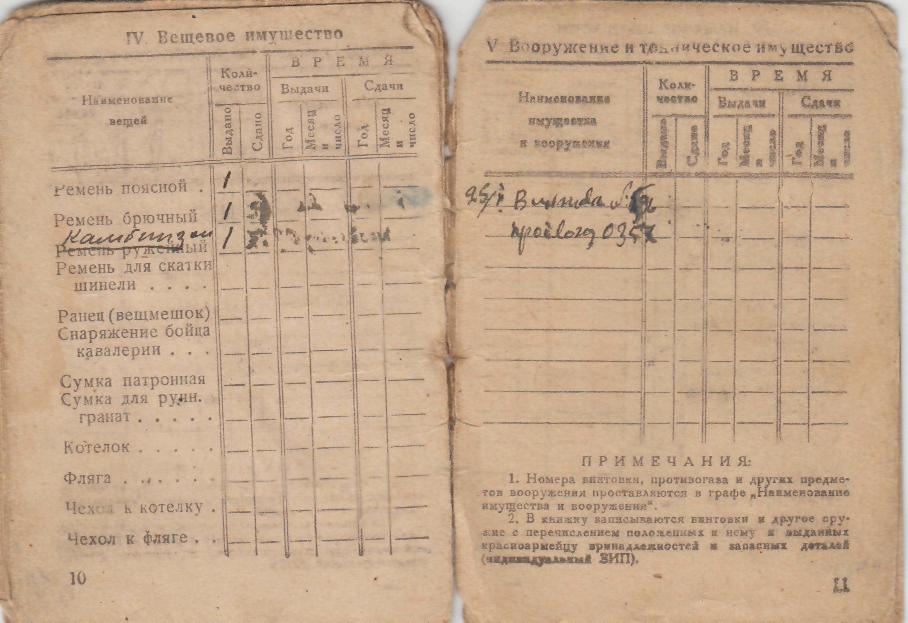 IV. Вещевое имущество
Наименование
вещей
Коли-
чество
ВРЕМЯ
Выдачи
Сдачи
Выдано
Сдано
Год
Месяц
и
число
Год
Месяц
и
число
Ремень поясной . 1
Ремень брючный 1
Ремень руженный 1
Ремень для скатки
шинели . . . .
Ранец (вещмешок)
Снаряжение бойца
кавалерии . . .
Сумка патронная
Сумка для ручн.
гранат . . . . .
Котелок . . . . .
Фляга . . . . . .
Чехол к котелку .
Чехол к фляге . .
10
V Вооружение и техническое имущество
Наименование
имущества
и вооружения
Коли-
чество
ВРЕМЯ
Выдачи
Сдачи
Выдано
Сдано
Год
Месяц
и
число
Год
Месяц
и
число
ПРИМЕЧАНИЯ:
1. Номера винтовки, противогаза и других предме-
тов вооружения проставляются в графе „Наименование
имущества и вооружения“.
2. В книжку записываются винтовки и другое ору-
жие с перечислением положенных к нему и выданных
красноармейцу принадлежностей и запасных деталей
(индивидуальный ЗИП).
11